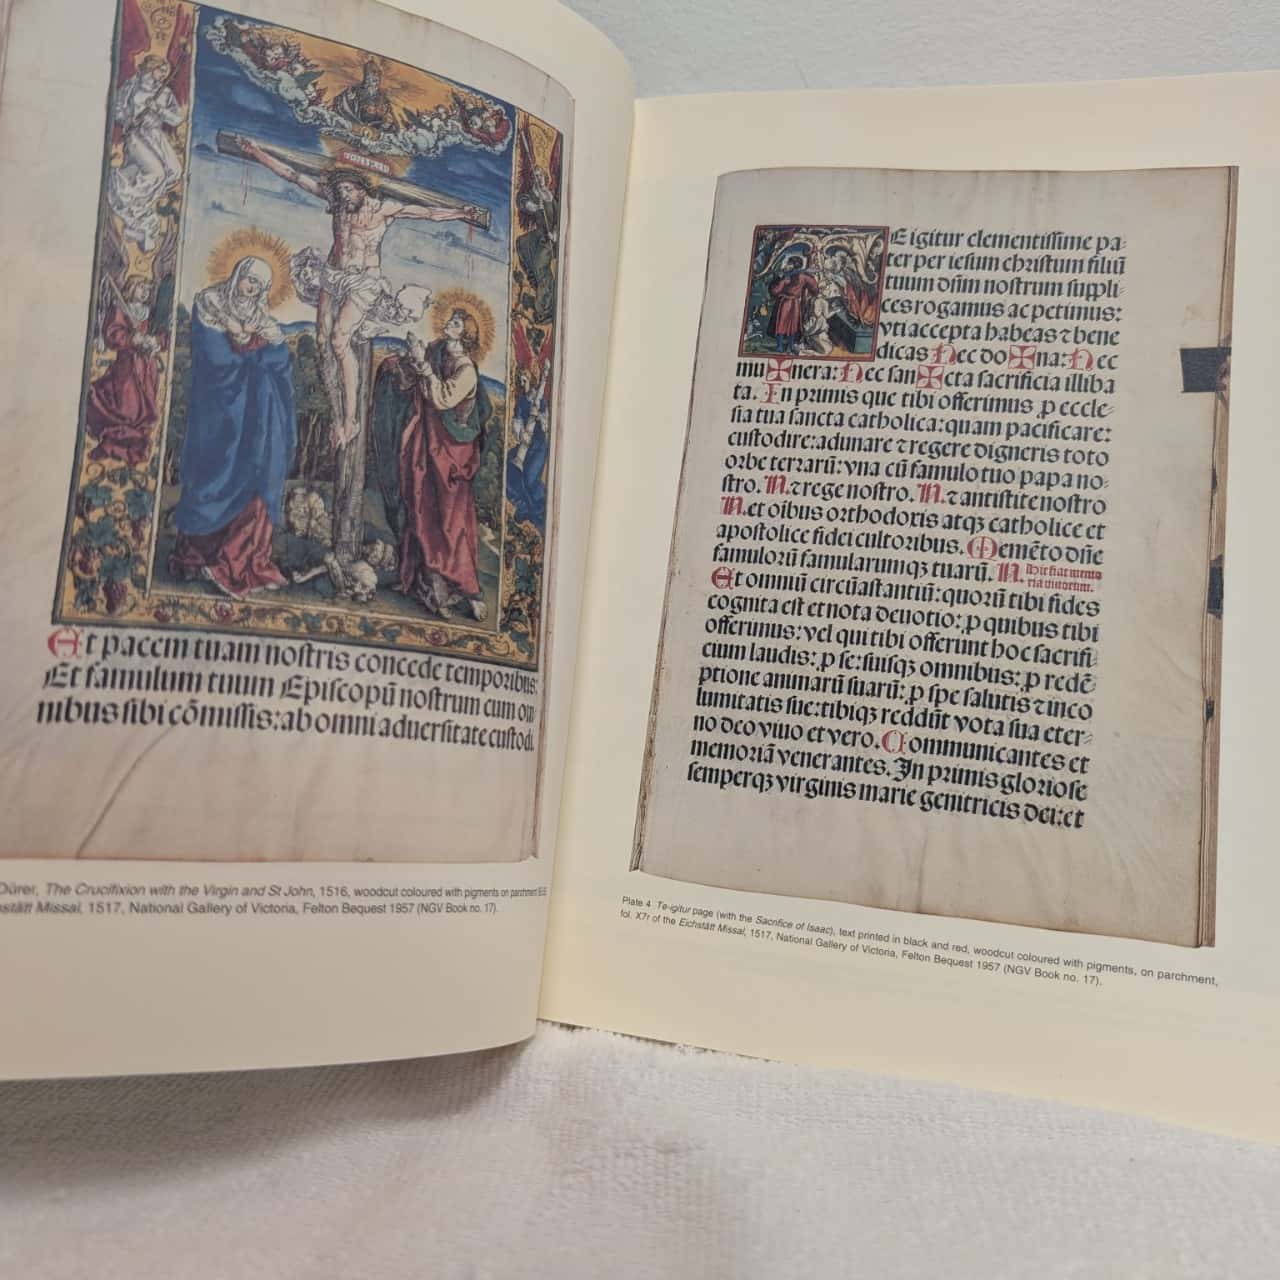 Et pacem tuam nostris concede temporibus:
Et famulum tuum Episcopū nostrum cum om
nibus sibi cōmissis: ab omni aduersitate custodi.
Dürer, The Crucifixion with the Virgin and St John, 1516, woodcut coloured with pigments on parchment
stätt Missal, 1517, National Gallery of Victoria, Felton Bequest 1957 (NGV Book no. 17).
E igitur clementissime pa-
ter per iesum christum filiū
tuum dn̄m nostrum suppli-
ces rogamus ac petimus:
vti accepta habeas ⁊ bene
dicas Nec do✠na: Nec
mu✠nera: Nec san✠cta sacrificia illiba
ta. In primis que tibi offerimus ꝓ eccle-
sia tua sancta catholica: quam pacificare:
custodire: adunare ⁊ regere digneris toto
orbe terrarū: vna cū famulo tuo papa no-
stro. N. ⁊ rege nostro. N. ⁊ antistite nostro
N. et oībus orthodoxis atqꝫ catholice et
apostolice fidei cultoribus. Memēto dn̄e
famulorū famularumqꝫ tuarū. N. Hic fiat memo
ria viuorum.
Et omniū circūastantiū: quorū tibi fides
cognita est et nota deuotio: ꝓ quibus tibi
offerimus: vel qui tibi offerunt hoc sacrifi-
cium laudis: ꝓ se: suisqꝫ omnibus: ꝓ redē-
ptione animarū suarū: ꝓ spe salutis ⁊ inco
lumitatis sue: tibiqꝫ reddūt vota sua eter-
no deo viuo et vero. Communicantes et
memoriā venerantes. In primis gloriose
semperqꝫ virginis marie genitricis dei: et
Plate 4 Te-igitur page (with the Sacrifice of Isaac), text printed in black and red, woodcut coloured with pigments, on parchment,
fol. X7r of the Eichstätt Missal, 1517, National Gallery of Victoria, Felton Bequest 1957 (NGV Book no. 17).